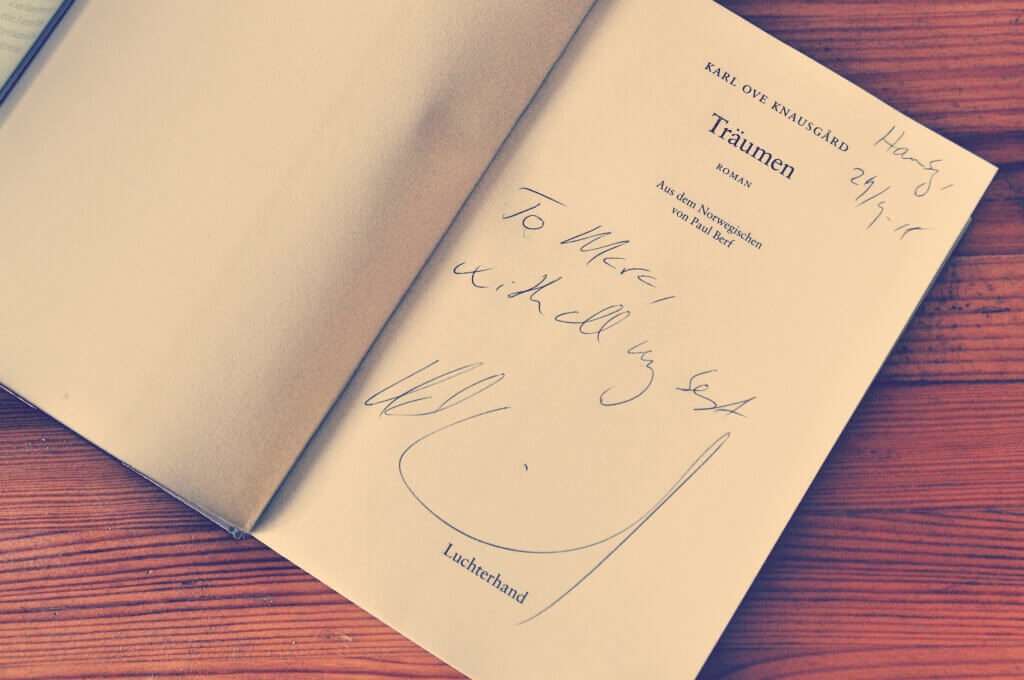 KARL OVE KNAUSGÅRD
Träumen
ROMAN
Aus dem Norwegischen
von Paul Berf
29/9-15
To Marc,
with all my best
Luchterhand